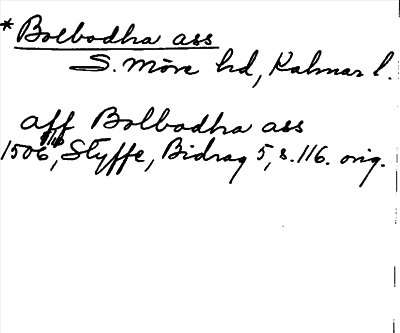 *Bolbodha ass
S. Möre hd, Kalmar l.
aff Bolbodha ass
1506, Styffe, Bidrag 5, s. 116. orig.